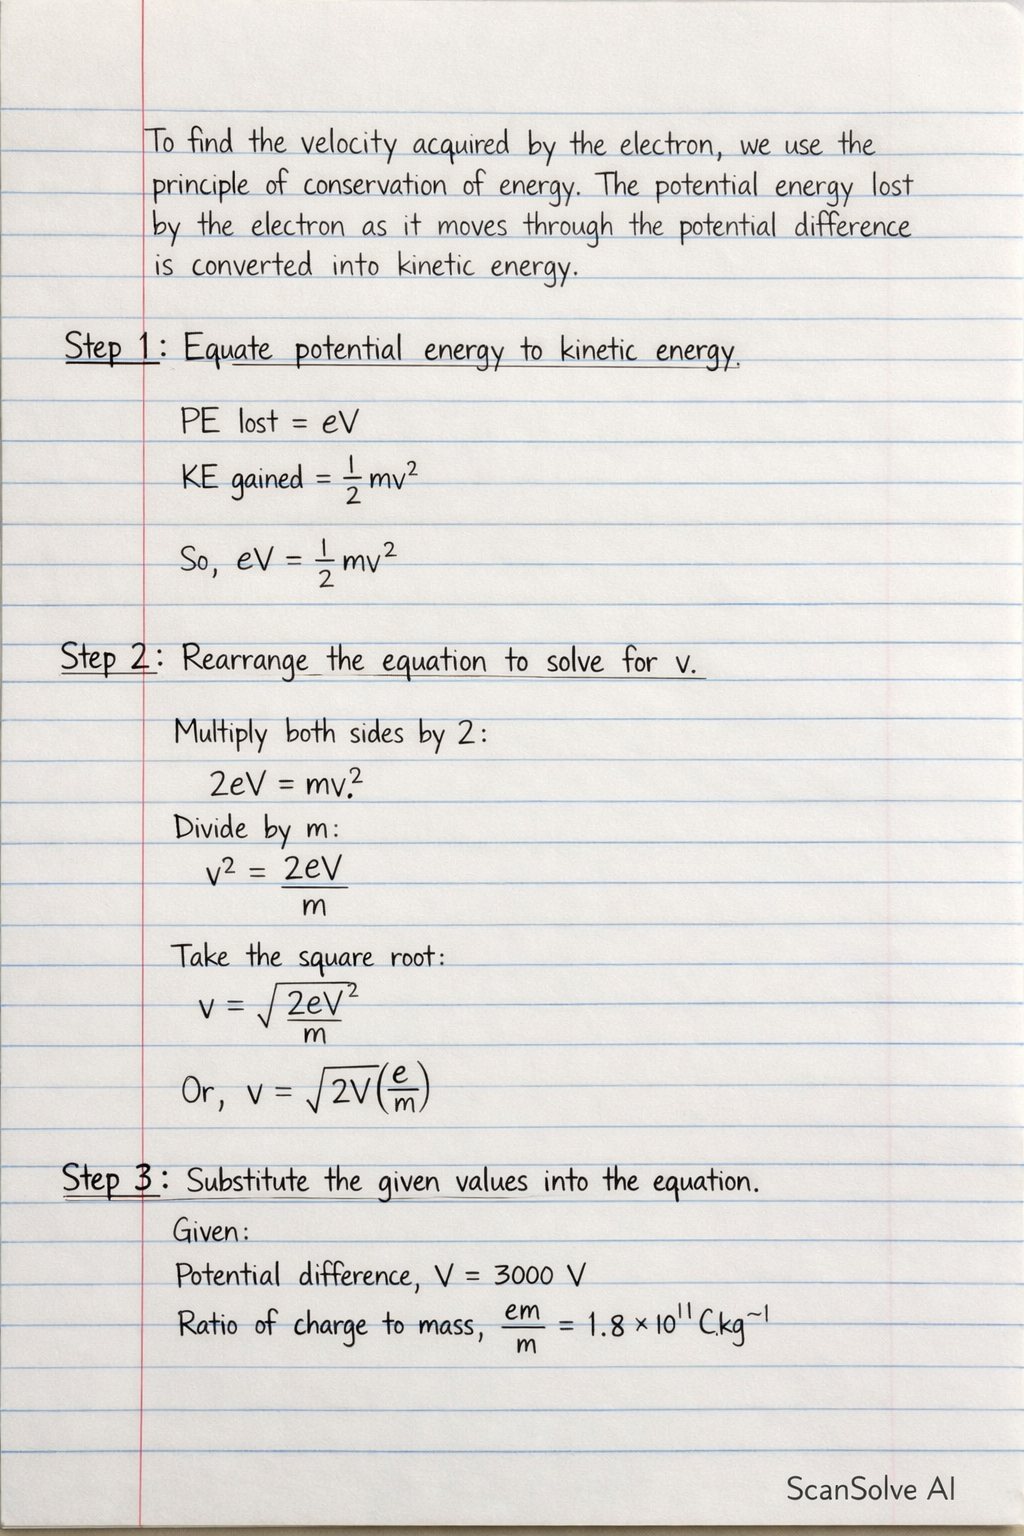 To find the velocity acquired by the electron, we use the
principle of conservation of energy. The potential energy lost
by the electron as it moves through the potential difference
is converted into kinetic energy.
Step 1: Equate potential energy to kinetic energy.
PE lost = eV
KE gained = 1/2 mv²
So, eV = 1/2 mv²
Step 2: Rearrange the equation to solve for v.
Multiply both sides by 2:
2eV = mv.²
Divide by m:
v² = 2eV/m
Take the square root:
v = √2eV²/m
Or, v = √2V(e/m)
Step 3: Substitute the given values into the equation.
Given:
Potential difference, V = 3000 V
Ratio of charge to mass, em/m = 1.8 × 10¹¹ C.kg⁻¹
ScanSolve AI